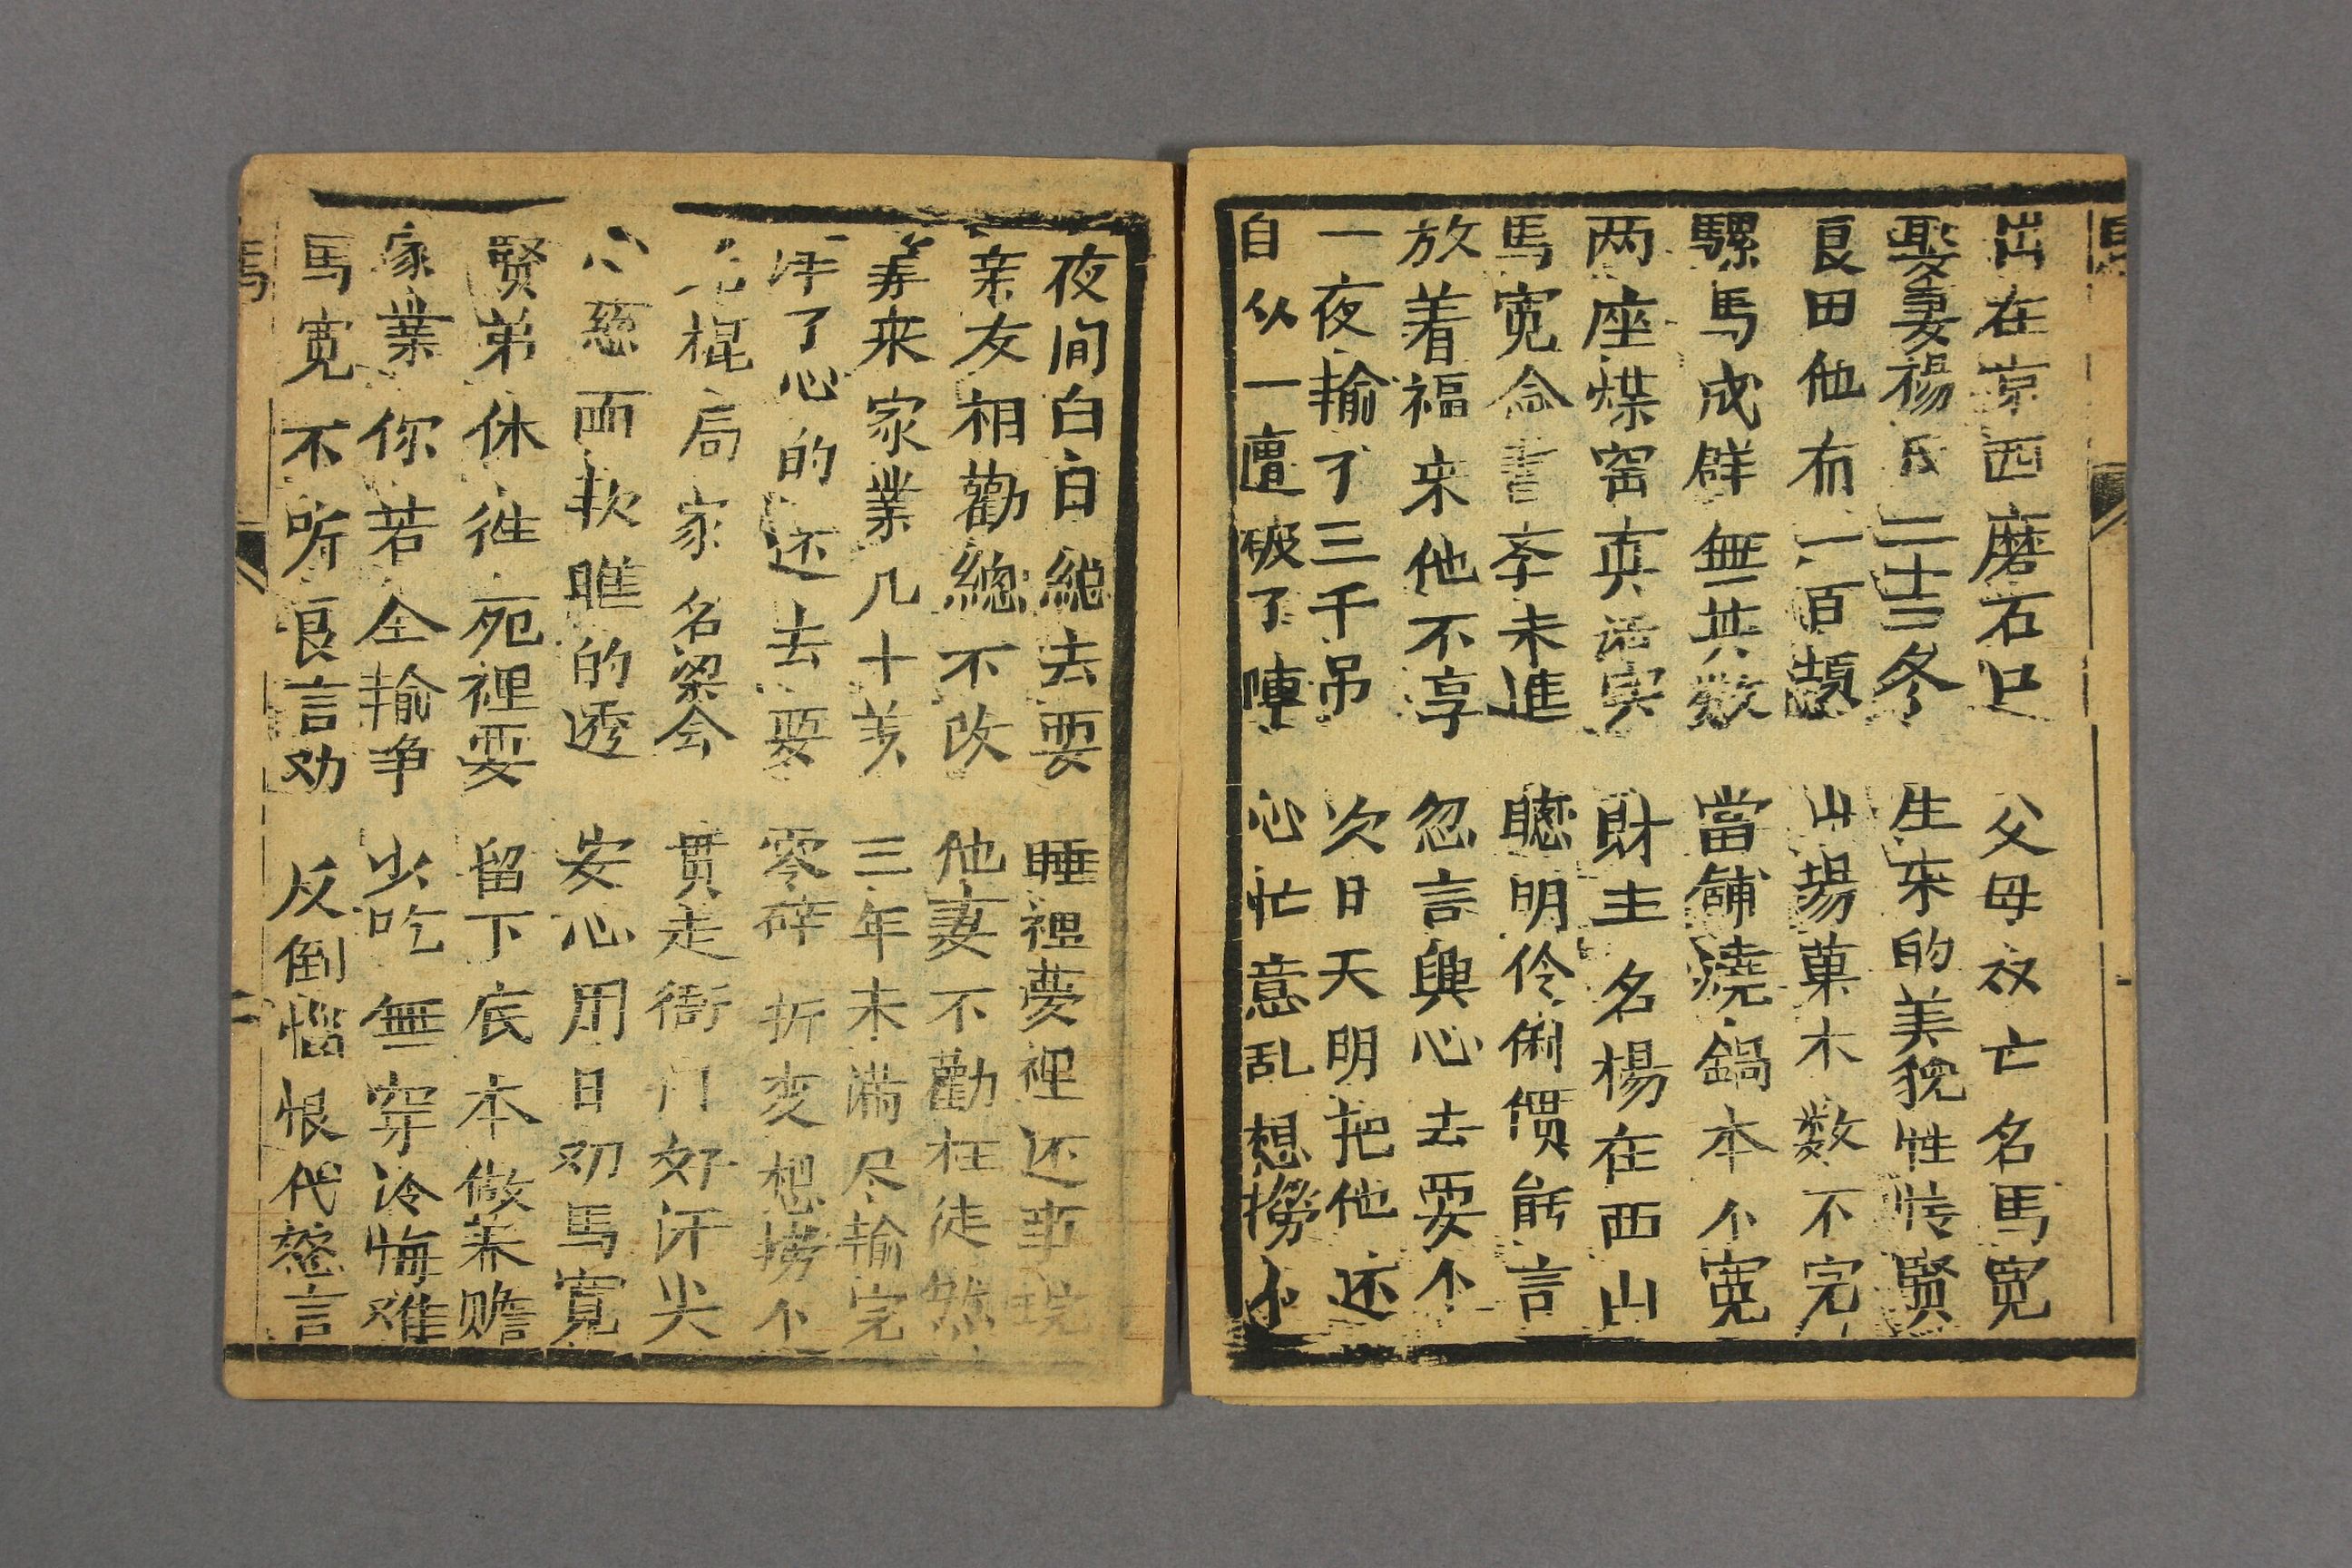 出在京西磨石口 父母双亡名馬寛
娶妻楊氏二十三冬 生來的美貌性情賢
良田他有一百頃 山場菓木数不完
騾馬成群無其数 當舗燒鍋本个寛
两座煤窑真活宝 財主名楊在西山
馬寛念書斈未進 聰明伶俐慣能言
放着福来他不享 忽言興心去耍个
一夜輸了三千吊 次日天明把他还
自从一遭破了陣 心忙意乱想撈个
夜间白白総去耍 睡裡夢裡还事
亲友相勸總不改 他妻不勸枉徒然
来家業几十美 三年未满尽输完
了心的还去耍 零碎折变想撈个
棍局家名梁会 貫走衙门好汗尖
心慈面軟瞧的透 安心用日劝馬寛
贤弟休往宛裡耍 留下底本做养赡
家業你若全输净 少吃無穿冷悔难
馬寛不听良言劝 反倒惱恨代怒言
馬 二